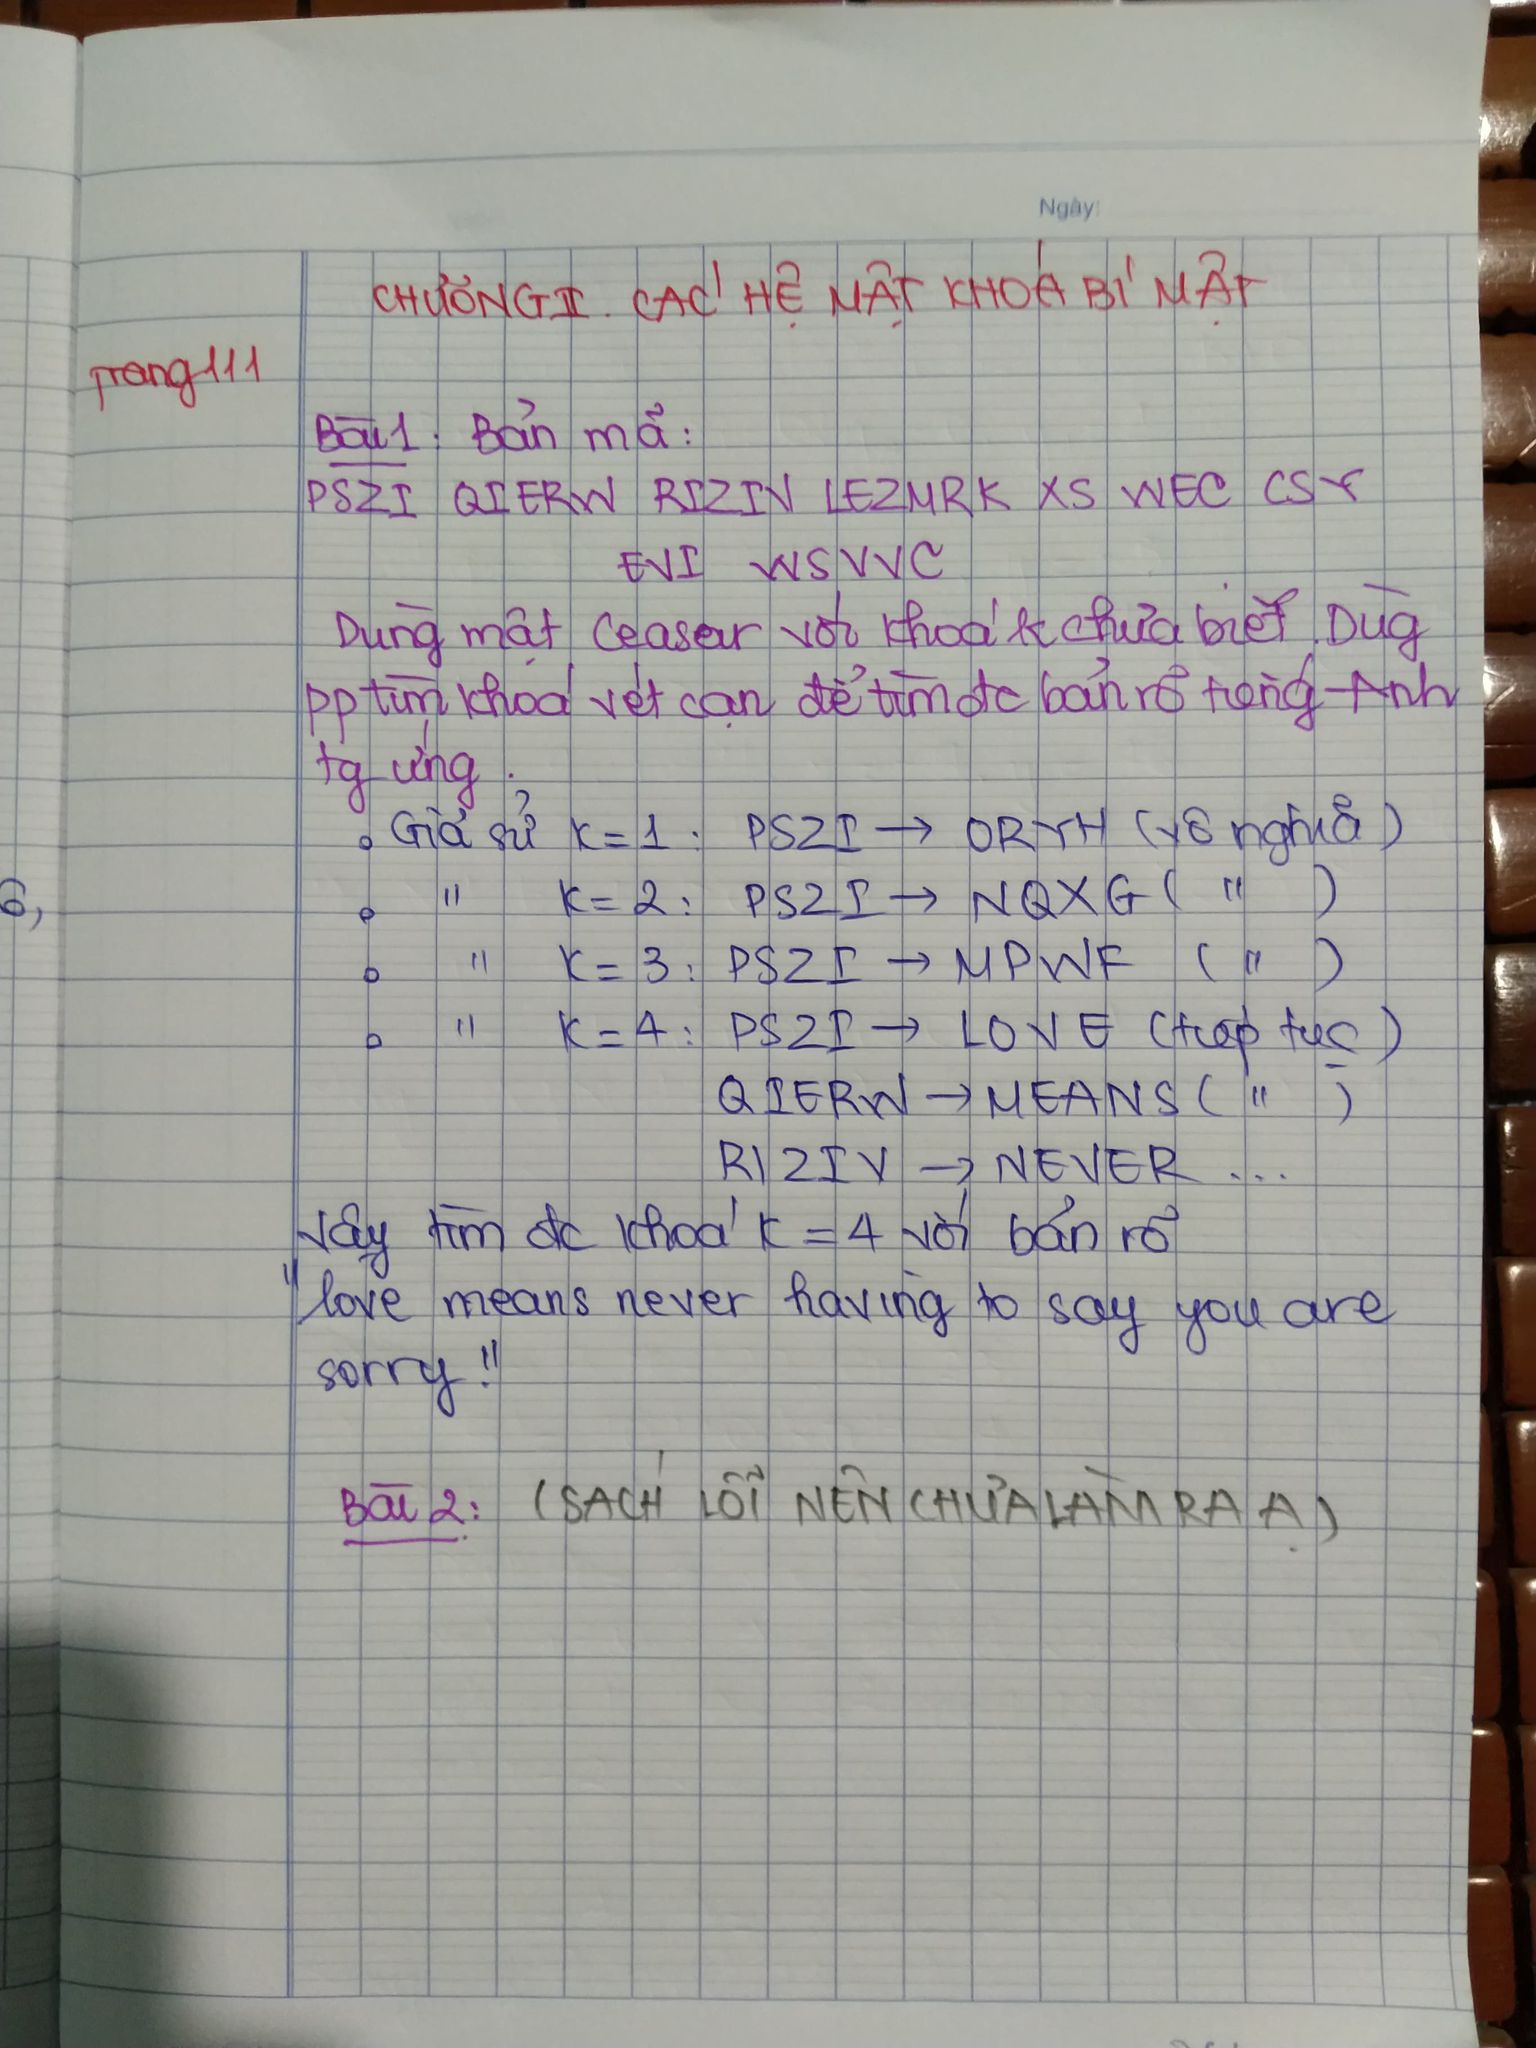 Ngày:
CHƯƠNG II. CÁC HỆ MẬT KHOÁ BÍ MẬT
Trang 111
Bài 1: Bản mã:
PSZI QIERW RIZIV LEZMRK XS WEC CSY
EVI WSVVC
Dùng mật Ceaser với khoá k chưa biết. Dùg
pp tìm khoá vét cạn để tìm đc bản rõ tiếng Anh
tg ứng.
Giả sử K = 1: PSZI → ORYH (vô nghĩa)
" K = 2: PSZI → NQXG ( " )
6,
" K = 3: PSZI → MPWF ( " )
" K = 4: PSZI → LOVE (tiếp tục)
QIERW → MEANS ( " )
RIZIV → NEVER ...
Vậy tìm đc khoá K = 4 với bản rõ
"love means never having to say you are
sorry!"
Bài 2: (SÁCH LỖI NÊN CHƯA LÀM RA Ạ)